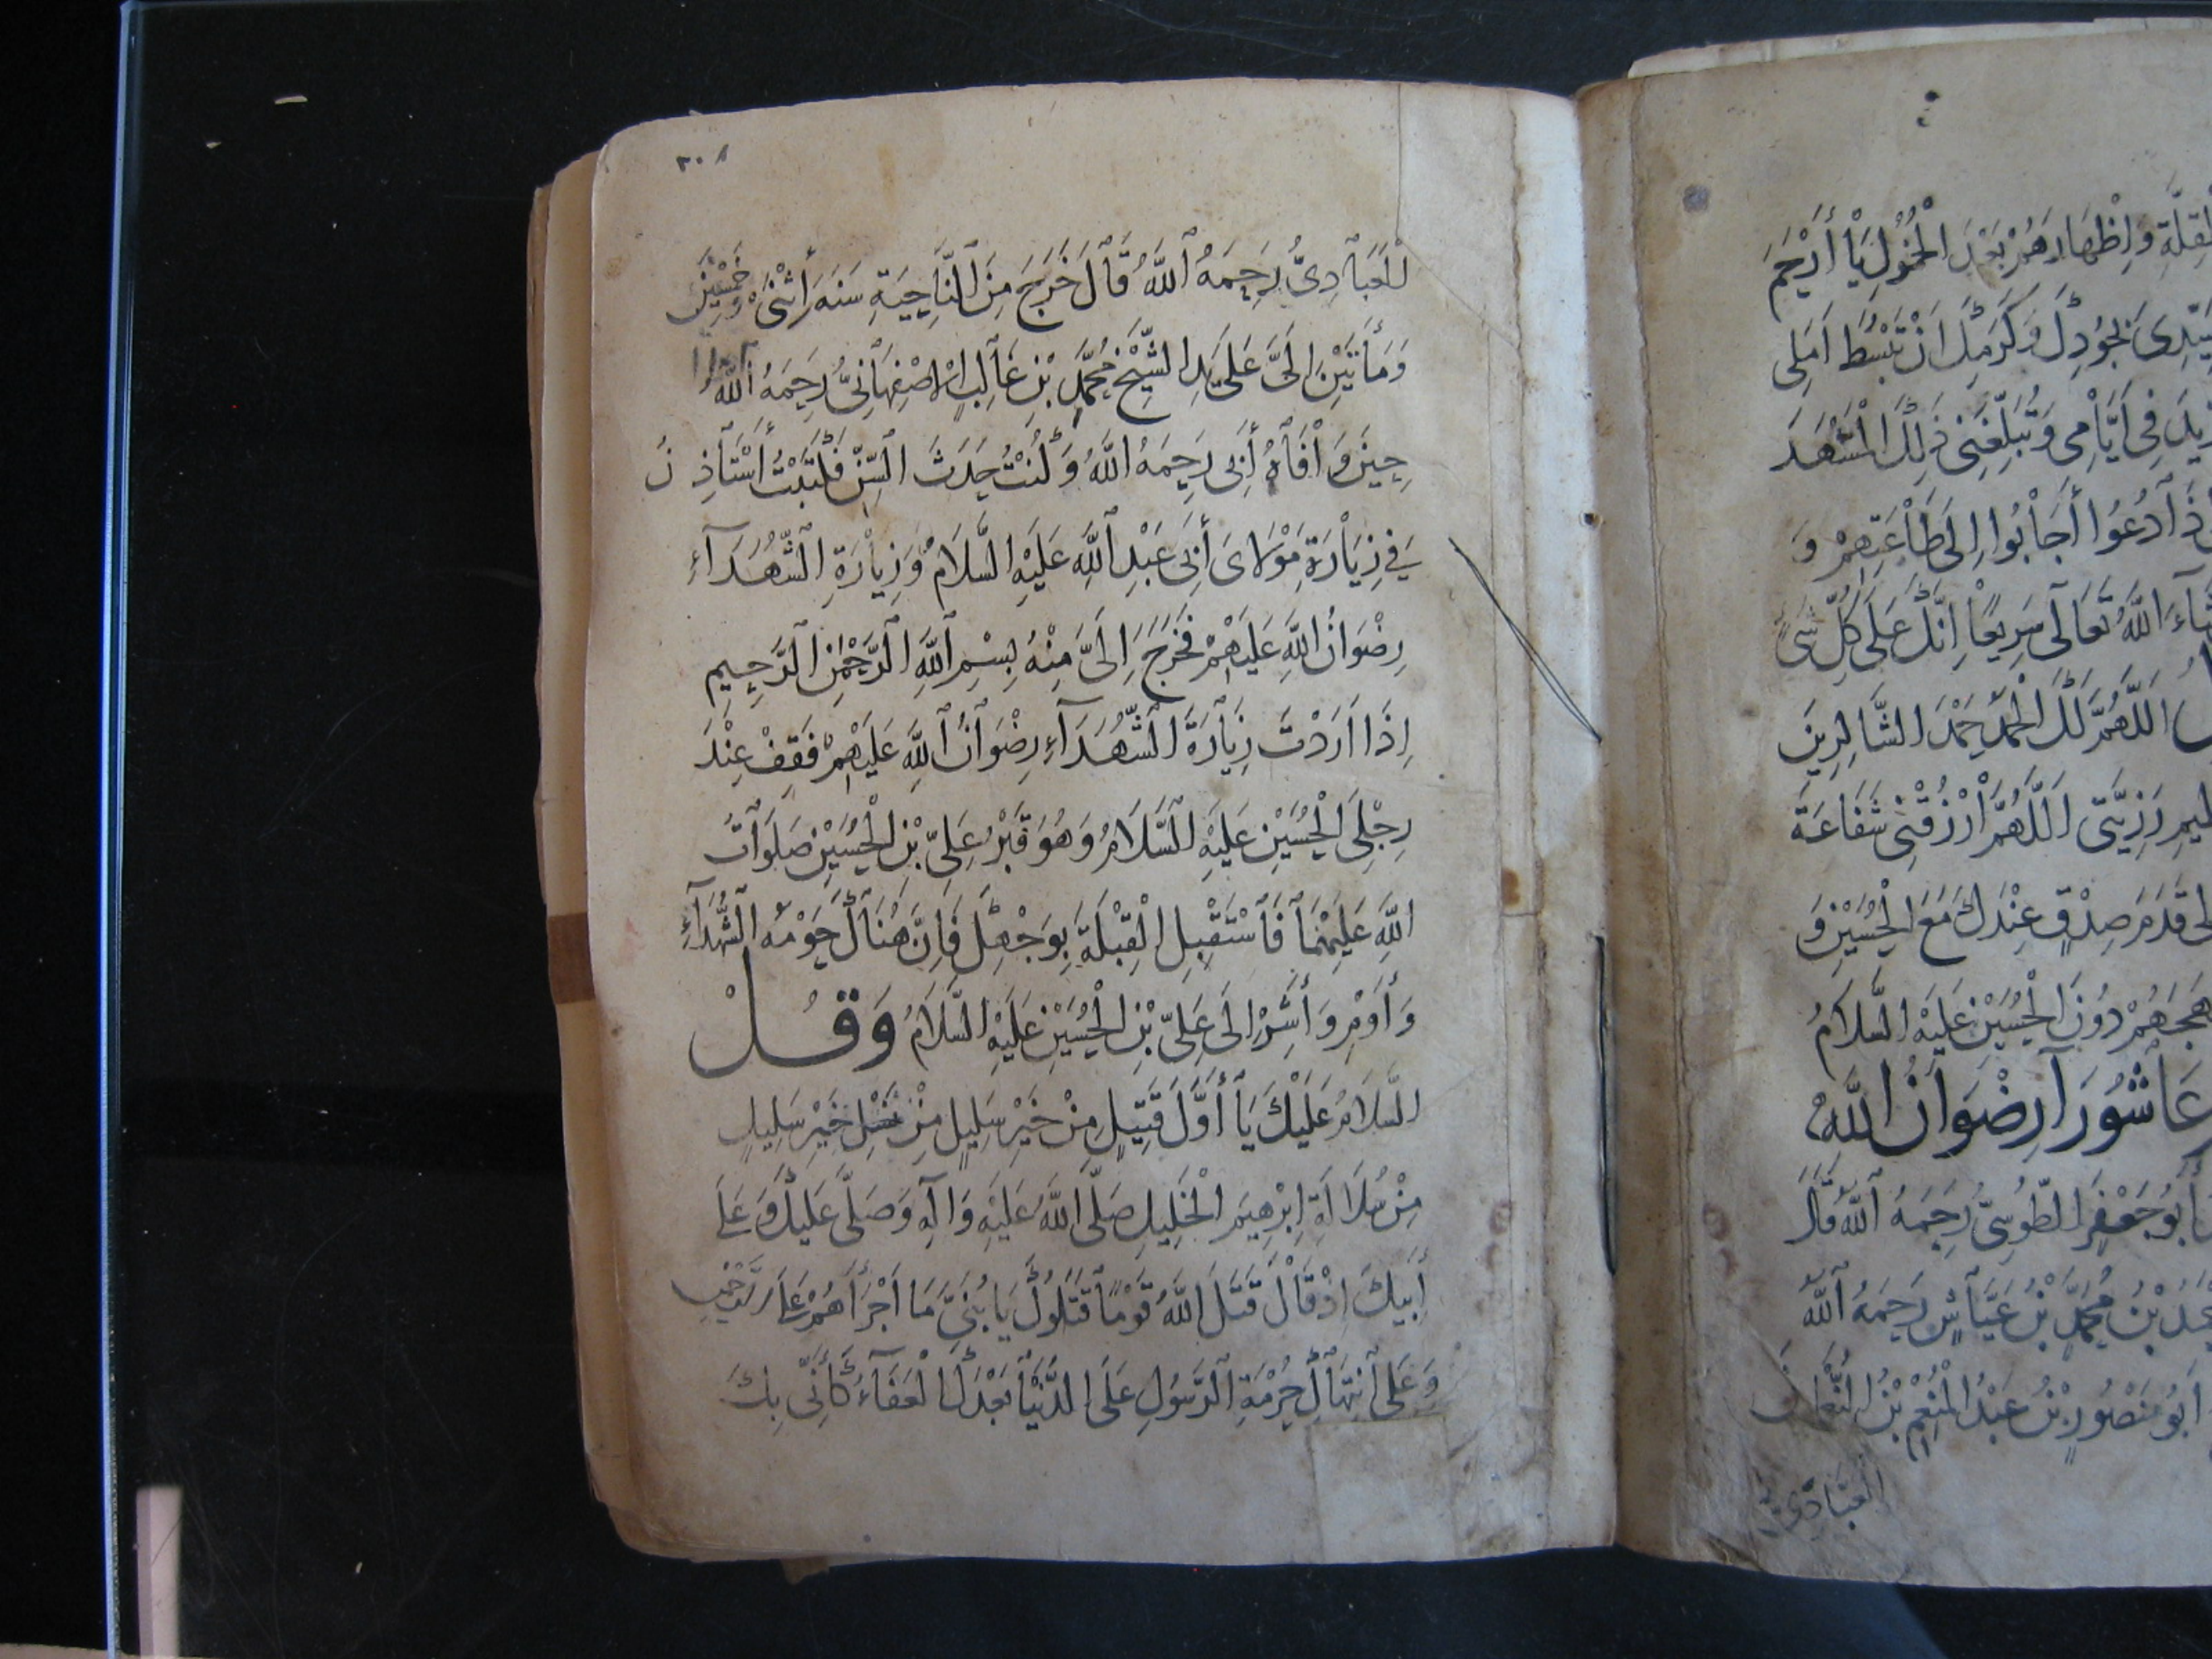 القِلَّةِ وَاِظْهَارَهُمْ بَعْدَ الْخُمُولِ يَا أَرْحَمَ
سَيِّدِى بِجُودِكَ وَكَرَمِكَ اَنْ تَبْسُطَ اَمَلِى
فِى اَيَّامِى وَتُبَلِّغَنِى ذٰلِكَ الْمَشْهَدَ
دُعُوا أَجَابُوا اِلَى طَاعَتِهِمْ وَ
شَاءَ اللّٰهُ تَعَالَى سَرِيعًا اِنَّكَ عَلَى كُلِّ شَىْءٍ
اَللّٰهُمَّ لَكَ الْحَمْدُ حَمْدَ الشَّاكِرِينَ
رَزِيَّتِى اَللّٰهُمَّ ارْزُقْنِى شَفَاعَةَ
قَدَمَ صِدْقٍ عِنْدَكَ مَعَ الْحُسَيْنِ وَ
مُهَجَهُمْ دُونَ الْحُسَيْنِ عَلَيْهِ السَّلَامُ
عَاشُورَآ رِضْوَانُ اللّٰهِ
أَبُو جَعْفَرٍ الطُّوسِىُّ رَحِمَهُ اللّٰهُ قَالَ
بْنُ مُحَمَّدِ بْنِ عَيَّاشٍ رَحِمَهُ اللّٰهُ
اَبُو مَنْصُورِ بْنُ عَبْدُ الْمُنْعِمِ بْنُ النُّعْمَانَ
الْعَبَادِىُّ
٣٠٨
الْعَبَادِىُّ رَحِمَهُ اللّٰهُ قَالَ خَرَجَ مِنَ النَّاحِيَةِ سَنَةَ أَثْنَى وَخَمْسِينَ
وَمَأَتَيْنِ اِلَىَّ عَلَى يَدِ الشَّيْخِ مُحَمَّدِ بْنِ غَالِبٍ الْاِصْفِهَانِىُّ رَحِمَهُ اللّٰهُ
حِينَ وَافَاهُ أَبِى رَحِمَهُ اللّٰهُ وَكُنْتُ حَدَثَ السِّنِّ فَكَتَبْتُ أَسْتَأْذِنَ
فِى زِيَارَةِ مَوْلَاىَ أَبِى عَبْدِ اللّٰهِ عَلَيْهِ السَّلَامُ وَزِيَارَةِ الشُّهَدَآءِ
رِضْوَانُ اللّٰهِ عَلَيْهِمْ فَخَرَجَ اِلَىَّ مِنْهُ بِسْمِ اللّٰهِ الرَّحْمٰنِ الرَّحِيمِ
اِذَا اَرَدْتَ زِيَارَةَ الشُّهَدَآءِ رِضْوَانُ اللّٰهِ عَلَيْهِمْ فَقِفْ عِنْدَ
رِجْلَىِ الْحُسَيْنِ عَلَيْهِ السَّلَامُ وَهُوَ قَبْرُ عَلِىِّ بْنِ الْحُسَيْنِ صَلَوَاتُ
اللّٰهِ عَلَيْهِمَا فَاسْتَقْبِلِ الْقِبْلَةَ بِوَجْهِكَ فَاِنَّ هُنَاكَ حَوْمَةُ الشُّهَدَآءِ
وَأَوْمِ وَأَشِرْ اِلَى عَلِىِّ بْنِ الْحُسَيْنِ عَلَيْهِ السَّلَامُ وَقُلْ
السَّلَامُ عَلَيْكَ يَا أَوَّلَ قَتِيلٍ مِنْ خَيْرِ سَلِيلٍ مِنْ نَسْلِ خَيْرِ سَلِيلٍ
مِنْ سُلَالَةِ اِبْرٰهِيمَ الْخَلِيلِ صَلَّى اللّٰهُ عَلَيْهِ وَآلِهِ وَصَلَّى عَلَيْكَ وَعَلَى
أَبِيكَ اِذْ قَالَ قَتَلَ اللّٰهُ قَوْمًا قَتَلُوكَ يَا بُنَىَّ مَا اَجْرَأَهُمْ عَلَى
وَعَلَى انْتِهَاكِ حُرْمَةِ الرَّسُولِ عَلَى الدُّنْيَا بَعْدَكَ الْعَفَآءُ كَأَنِّى بِكَ